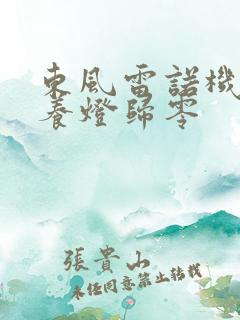 東風雷諾機
養燈歸零
張貴山
未經同意禁止轉載